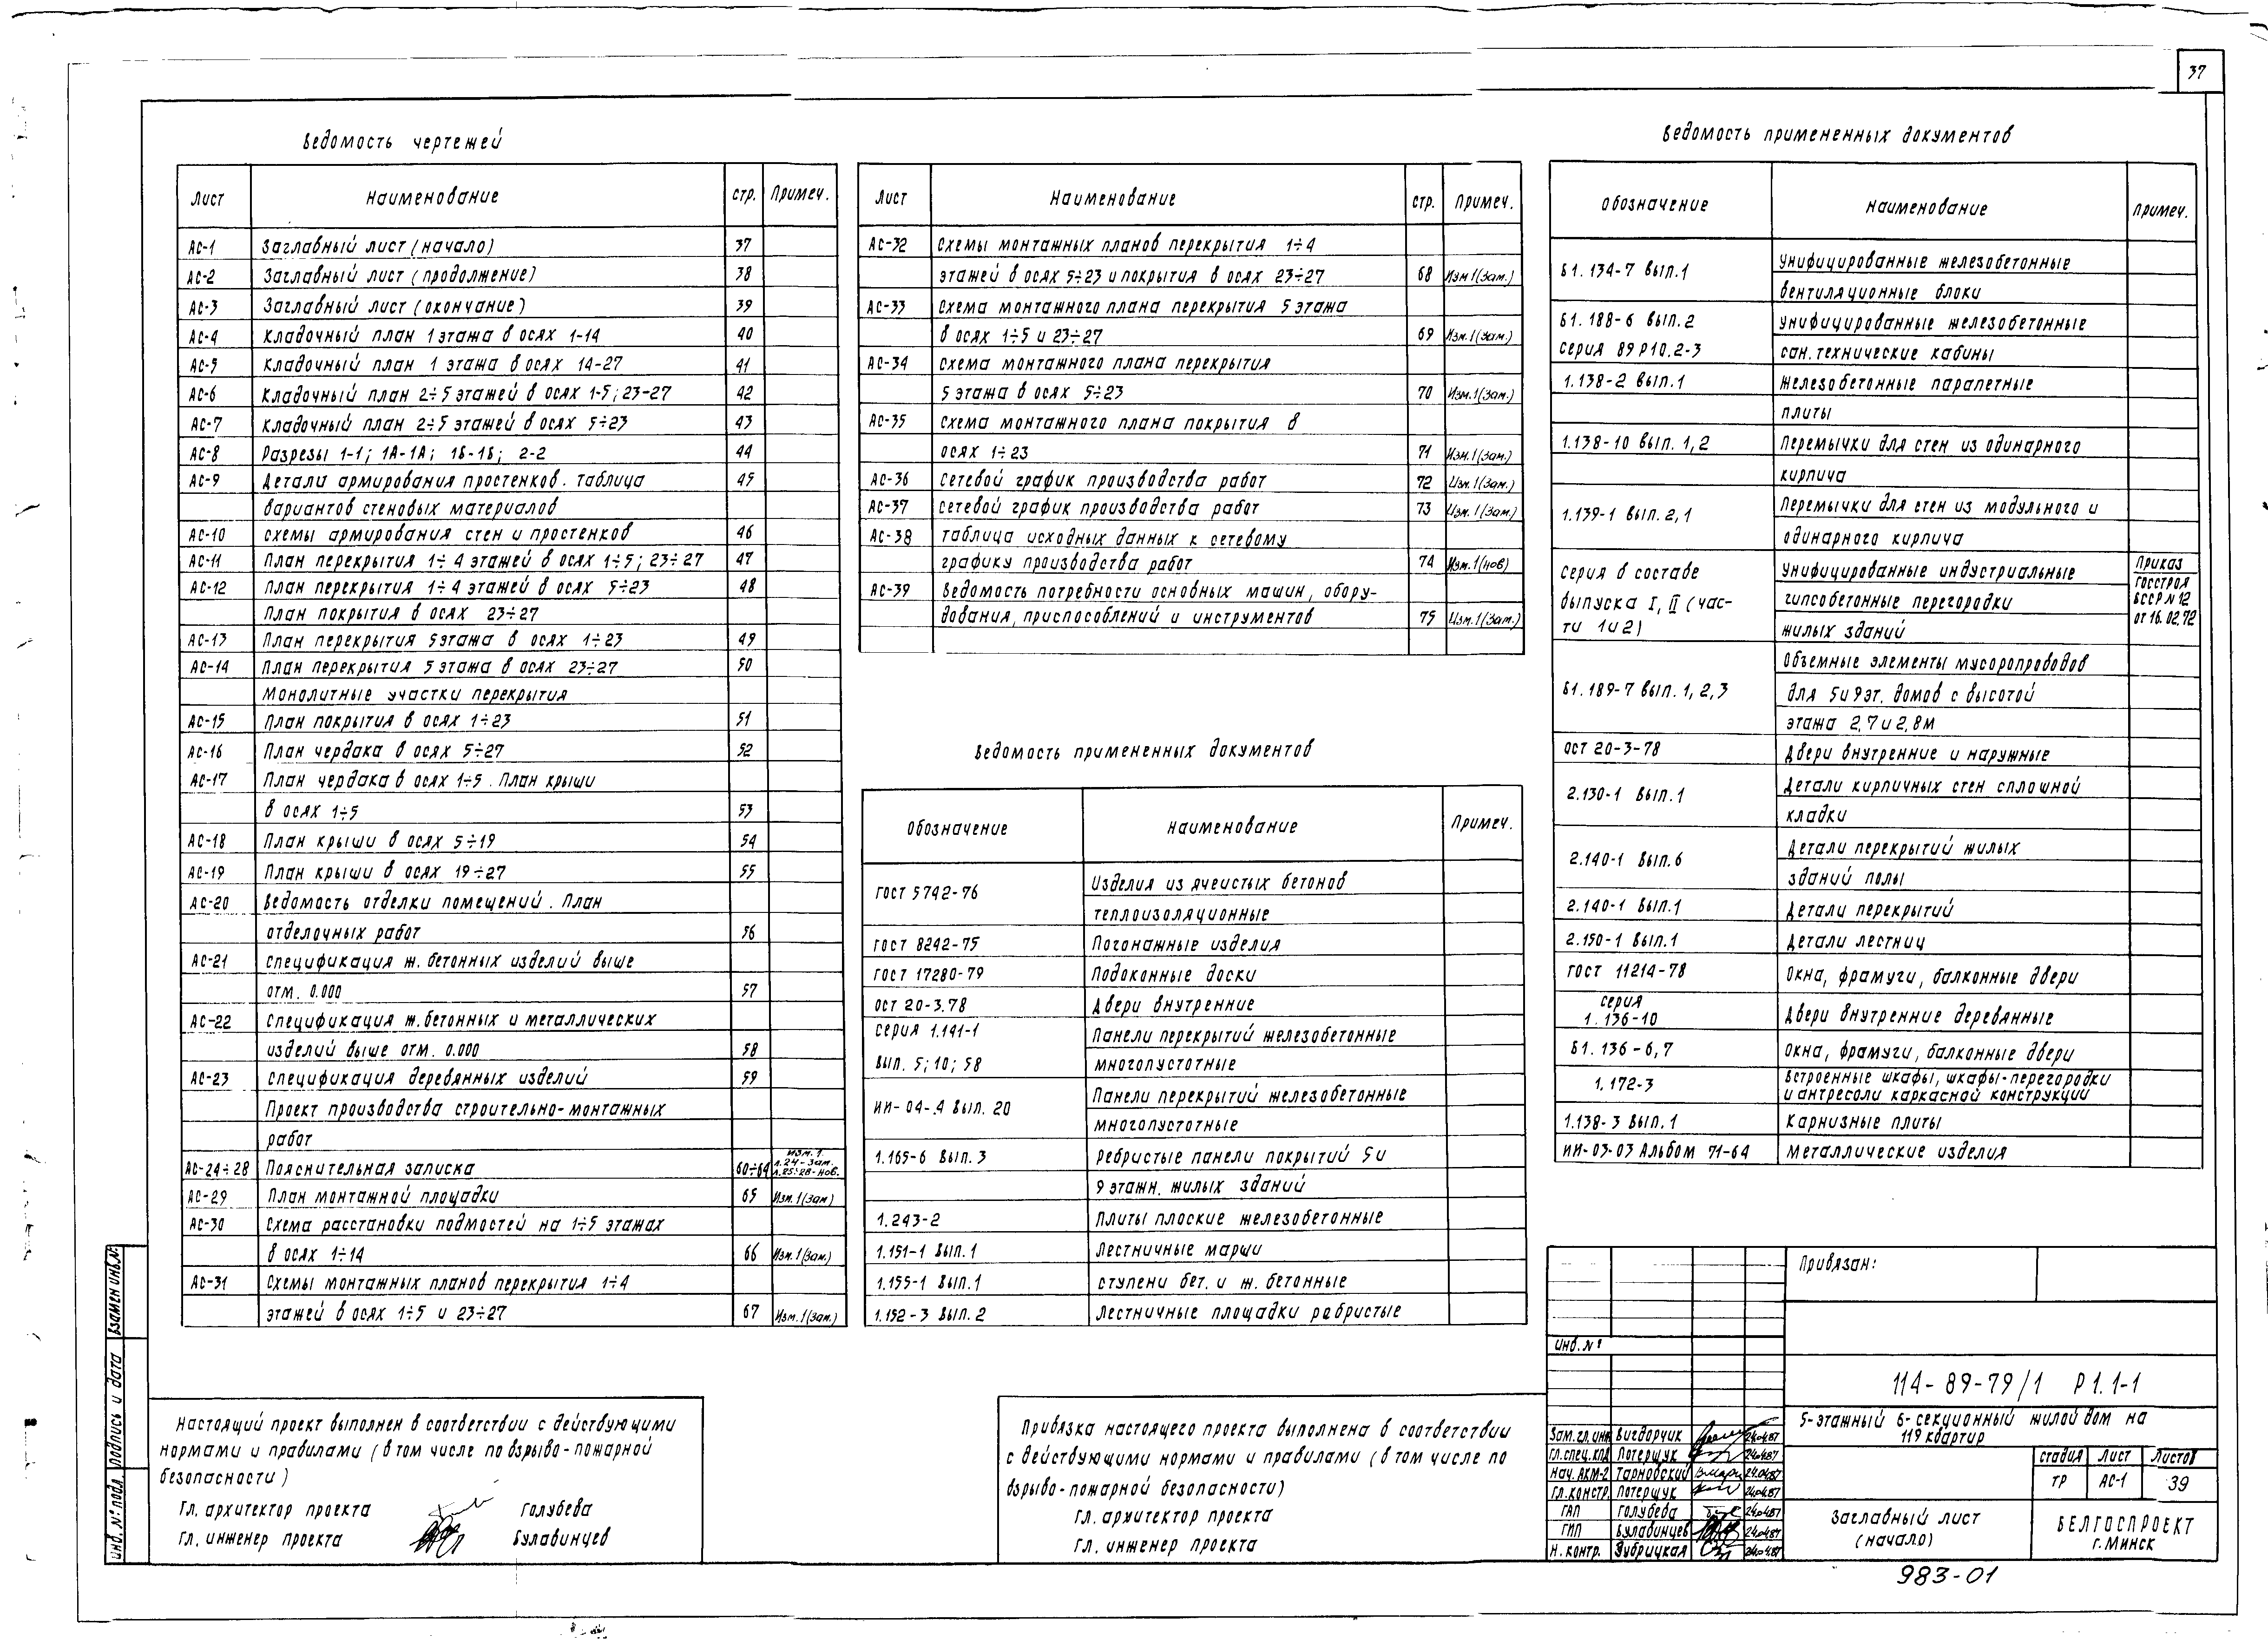 37
Ведомость чертежей
Лист Наименование стр. Примеч.
АС-1 Заглавный лист (начало) 37
АС-2 Заглавный лист (продолжение) 38
АС-3 Заглавный лист (окончание) 39
АС-4 Кладочный план 1 этажа в осях 1-14 40
АС-5 Кладочный план 1 этажа в осях 14-27 41
АС-6 Кладочный план 2÷5 этажей в осях 1-5; 23-27 42
АС-7 Кладочный план 2÷5 этажей в осях 5÷23 43
АС-8 Разрезы 1-1; 1А-1А; 1Б-1Б; 2-2 44
АС-9 Детали армирования простенков. Таблица 45
вариантов стеновых материалов
АС-10 Схемы армирования стен и простенков 46
АС-11 План перекрытия 1÷4 этажей в осях 1÷5; 23÷27 47
АС-12 План перекрытия 1÷4 этажей в осях 5÷23 48
План покрытия в осях 23÷27
АС-13 План перекрытия 5 этажа в осях 1÷23 49
АС-14 План перекрытия 5 этажа в осях 23÷27 50
Монолитные участки перекрытия
АС-15 План покрытия в осях 1÷23 51
АС-16 План чердака в осях 5÷27 52
АС-17 План чердака в осях 1÷5. План крыши
в осях 1÷5 53
АС-18 План крыши в осях 5÷19 54
АС-19 План крыши в осях 19÷27 55
АС-20 Ведомость отделки помещений. План
отделочных работ 56
АС-21 Спецификация ж. бетонных изделий выше
отм. 0.000 57
АС-22 Спецификация ж. бетонных и металлических
изделий выше отм. 0.000 58
АС-23 Спецификация деревянных изделий 59
Проект производства строительно-монтажных
работ
АС-24÷28 Пояснительная записка 60÷64 Изм. 1. л.24-зам. л.25÷28-нов.
АС-29 План монтажной площадки 65 Изм. 1 (зам)
АС-30 Схема расстановки подмостей на 1÷5 этажах
в осях 1÷14 66 Изм. 1 (зам)
АС-31 Схемы монтажных планов перекрытия 1÷4
этажей в осях 1÷5 и 23÷27 67 Изм. 1 (зам.)
Лист Наименование стр. Примеч.
АС-32 Схемы монтажных планов перекрытия 1÷4
этажей в осях 5÷23 и покрытия в осях 23÷27 68 Изм 1 (зам.)
АС-33 Схема монтажного плана перекрытия 5 этажа
в осях 1÷5 и 23÷27 69 Изм. 1 (зам.)
АС-34 Схема монтажного плана перекрытия
5 этажа в осях 5÷23 70 Изм. 1 (зам.)
АС-35 Схема монтажного плана покрытия в
осях 1÷23 71 Изм. 1 (зам.)
АС-36 Сетевой график производства работ 72 Изм. 1 (зам.)
АС-37 Сетевой график производства работ 73 Изм. 1 (зам.)
АС-38 Таблица исходных данных к сетевому
графику производства работ 74 Изм. 1 (нов)
АС-39 Ведомость потребности основных машин, обору-
дования, приспособлений и инструментов 75 Изм. 1 (зам.)
Ведомость примененных документов
Обозначение Наименование Примеч.
ГОСТ 5742-76 Изделия из ячеистых бетонов
теплоизоляционные
ГОСТ 8242-75 Погонажные изделия
ГОСТ 17280-79 Подоконные доски
ОСТ 20-3.78 Двери внутренние
Серия 1.141-1 Панели перекрытий железобетонные
вып. 5; 10; 58 многопустотные
ИИ-04-.4 вып. 20 Панели перекрытий железобетонные
многопустотные
1.165-6 вып. 3 Ребристые панели покрытий 5 и
9 этажн. жилых зданий
1.243-2 Плиты плоские железобетонные
1.151-1 вып. 1 Лестничные марши
1.155-1 вып. 1 Ступени бет. и ж. бетонные
1.152-3 вып. 2 Лестничные площадки ребристые
Ведомость примененных документов
Обозначение Наименование Примеч.
Б1. 134-7 вып. 1 Унифицированные железобетонные
вентиляционные блоки
Б1. 188-6 вып. 2 Унифицированные железобетонные
Серия 89 Р10.2-3 сан. технические кабины
1.138-2 вып. 1 Железобетонные парапетные
плиты
1.138-10 вып. 1, 2 Перемычки для стен из одинарного
кирпича
1.139-1 вып. 2, 1 Перемычки для стен из модульного и
одинарного кирпича
Серия в составе Унифицированные индустриальные Приказ
выпуска I, II (час- гипсобетонные перегородки Госстроя БССР N 12
ти 1 и 2) жилых зданий от 16.02.72
Объемные элементы мусоропроводов
Б1. 189-7 вып. 1, 2, 3 для 5 и 9 эт. домов с высотой
этажа 2,7 и 2,8м
ОСТ 20-3-78 Двери внутренние и наружные
2.130-1 вып. 1 Детали кирпичных стен сплошной
кладки
2.140-1 вып. 6 Детали перекрытий жилых
зданий полы
2.140-1 вып. 1 Детали перекрытий
2.150-1 вып. 1 Детали лестниц
ГОСТ 11214-78 Окна, фрамуги, балконные двери
серия
1. 136-10 Двери внутренние деревянные
Б1. 136-6, 7 Окна, фрамуги, балконные двери
1. 172-3 Встроенные шкафы, шкафы-перегородки
и антресоли каркасной конструкции
1.138-3 вып. 1 Карнизные плиты
ИИ-03-03 Альбом 71-64 Металлические изделия
Настоящий проект выполнен в соответствии с действующими
нормами и правилами (в том числе по взрыво-пожарной
безопасности)
Гл. архитектор проекта Голубева
Гл. инженер проекта Булавинцев
Привязка настоящего проекта выполнена в соответствии
с действующими нормами и правилами (в том числе по
взрыво-пожарной безопасности)
Гл. архитектор проекта
Гл. инженер проекта
Привязан:
Инв. №
114-89-79/1 Р1.1-1
5-этажный 6-секционный жилой дом на
119 квартир
Зам. гл. инж Вигдорчик 24.04.87
Гл. спец. КПД Потерщук 24.04.87
Нач. АКМ-2 Тарновский 24.04.87
Гл. констр. Потерщук 24.04.87
ГАП Голубева 24.04.87
ГИП Булавинцев 24.04.87
Н. контр. Зубрицкая 24.04.87
стадия Лист Листов
ТР АС-1 39
Заглавный лист
(начало)
БЕЛГОСПРОЕКТ
г. Минск
983-01
Инв. № подл. Подпись и дата Взамен инв. №